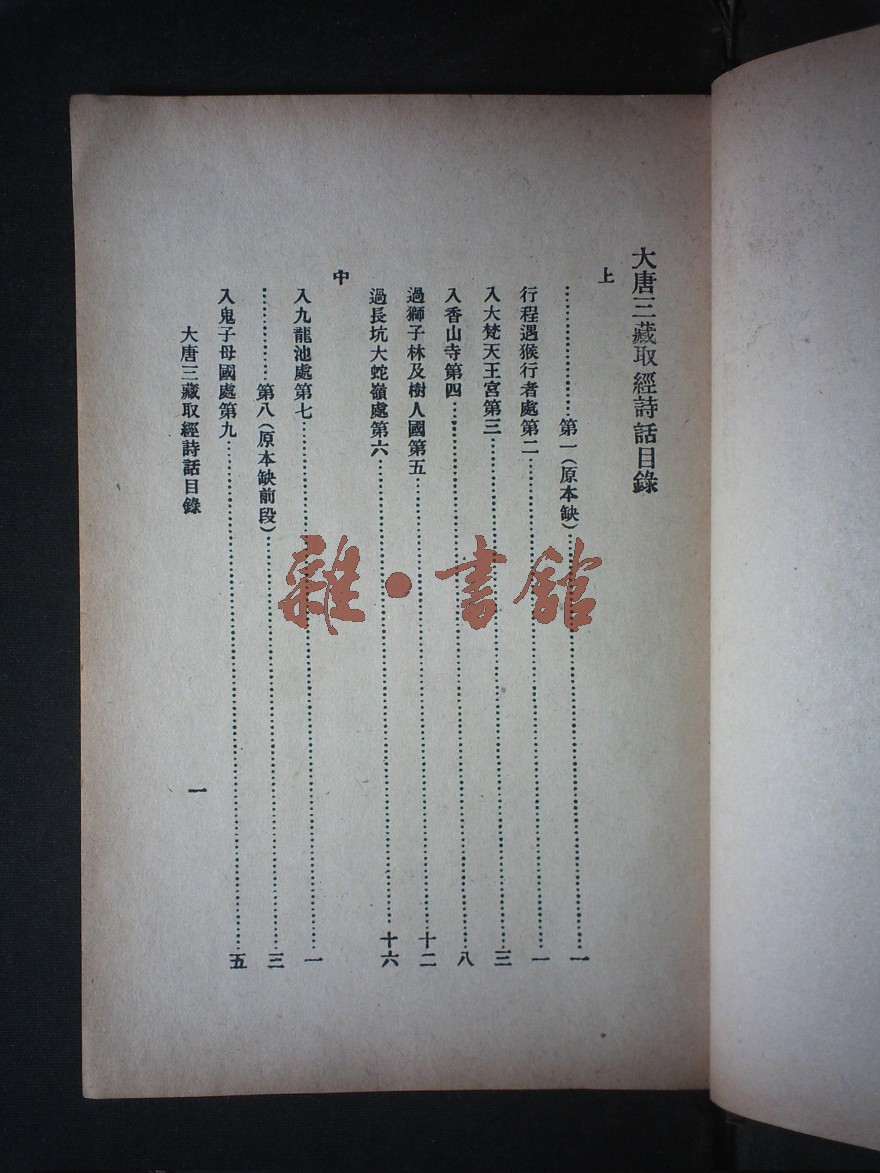 大唐三藏取經詩話目錄
上
……………第一(原本缺)……………一
行程遇猴行者處第二……………一
入大梵天王宮第三……………三
入香山寺第四……………八
過獅子林及樹人國第五……………十二
過長坑大蛇嶺處第六……………十六
中
入九龍池處第七……………一
……………第八(原本缺前段)……………三
入鬼子母國處第九……………五
大唐三藏取經詩話目錄
一
雜·書館